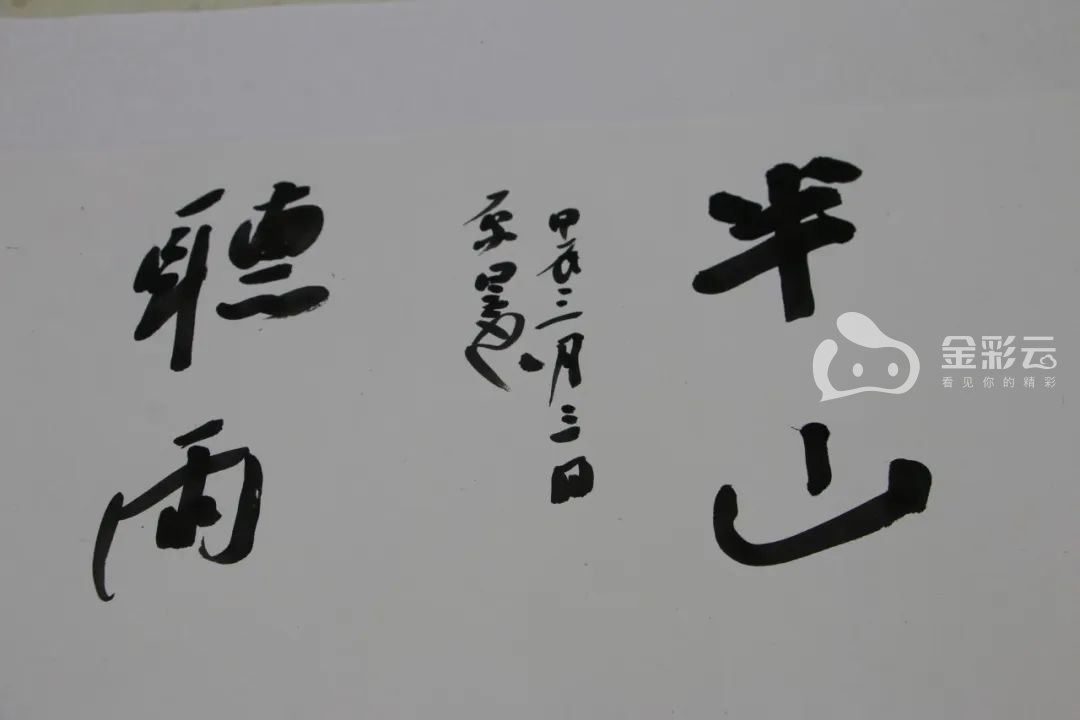 半山
甲辰三月三日
聽雨
金彩云
看见你的精彩